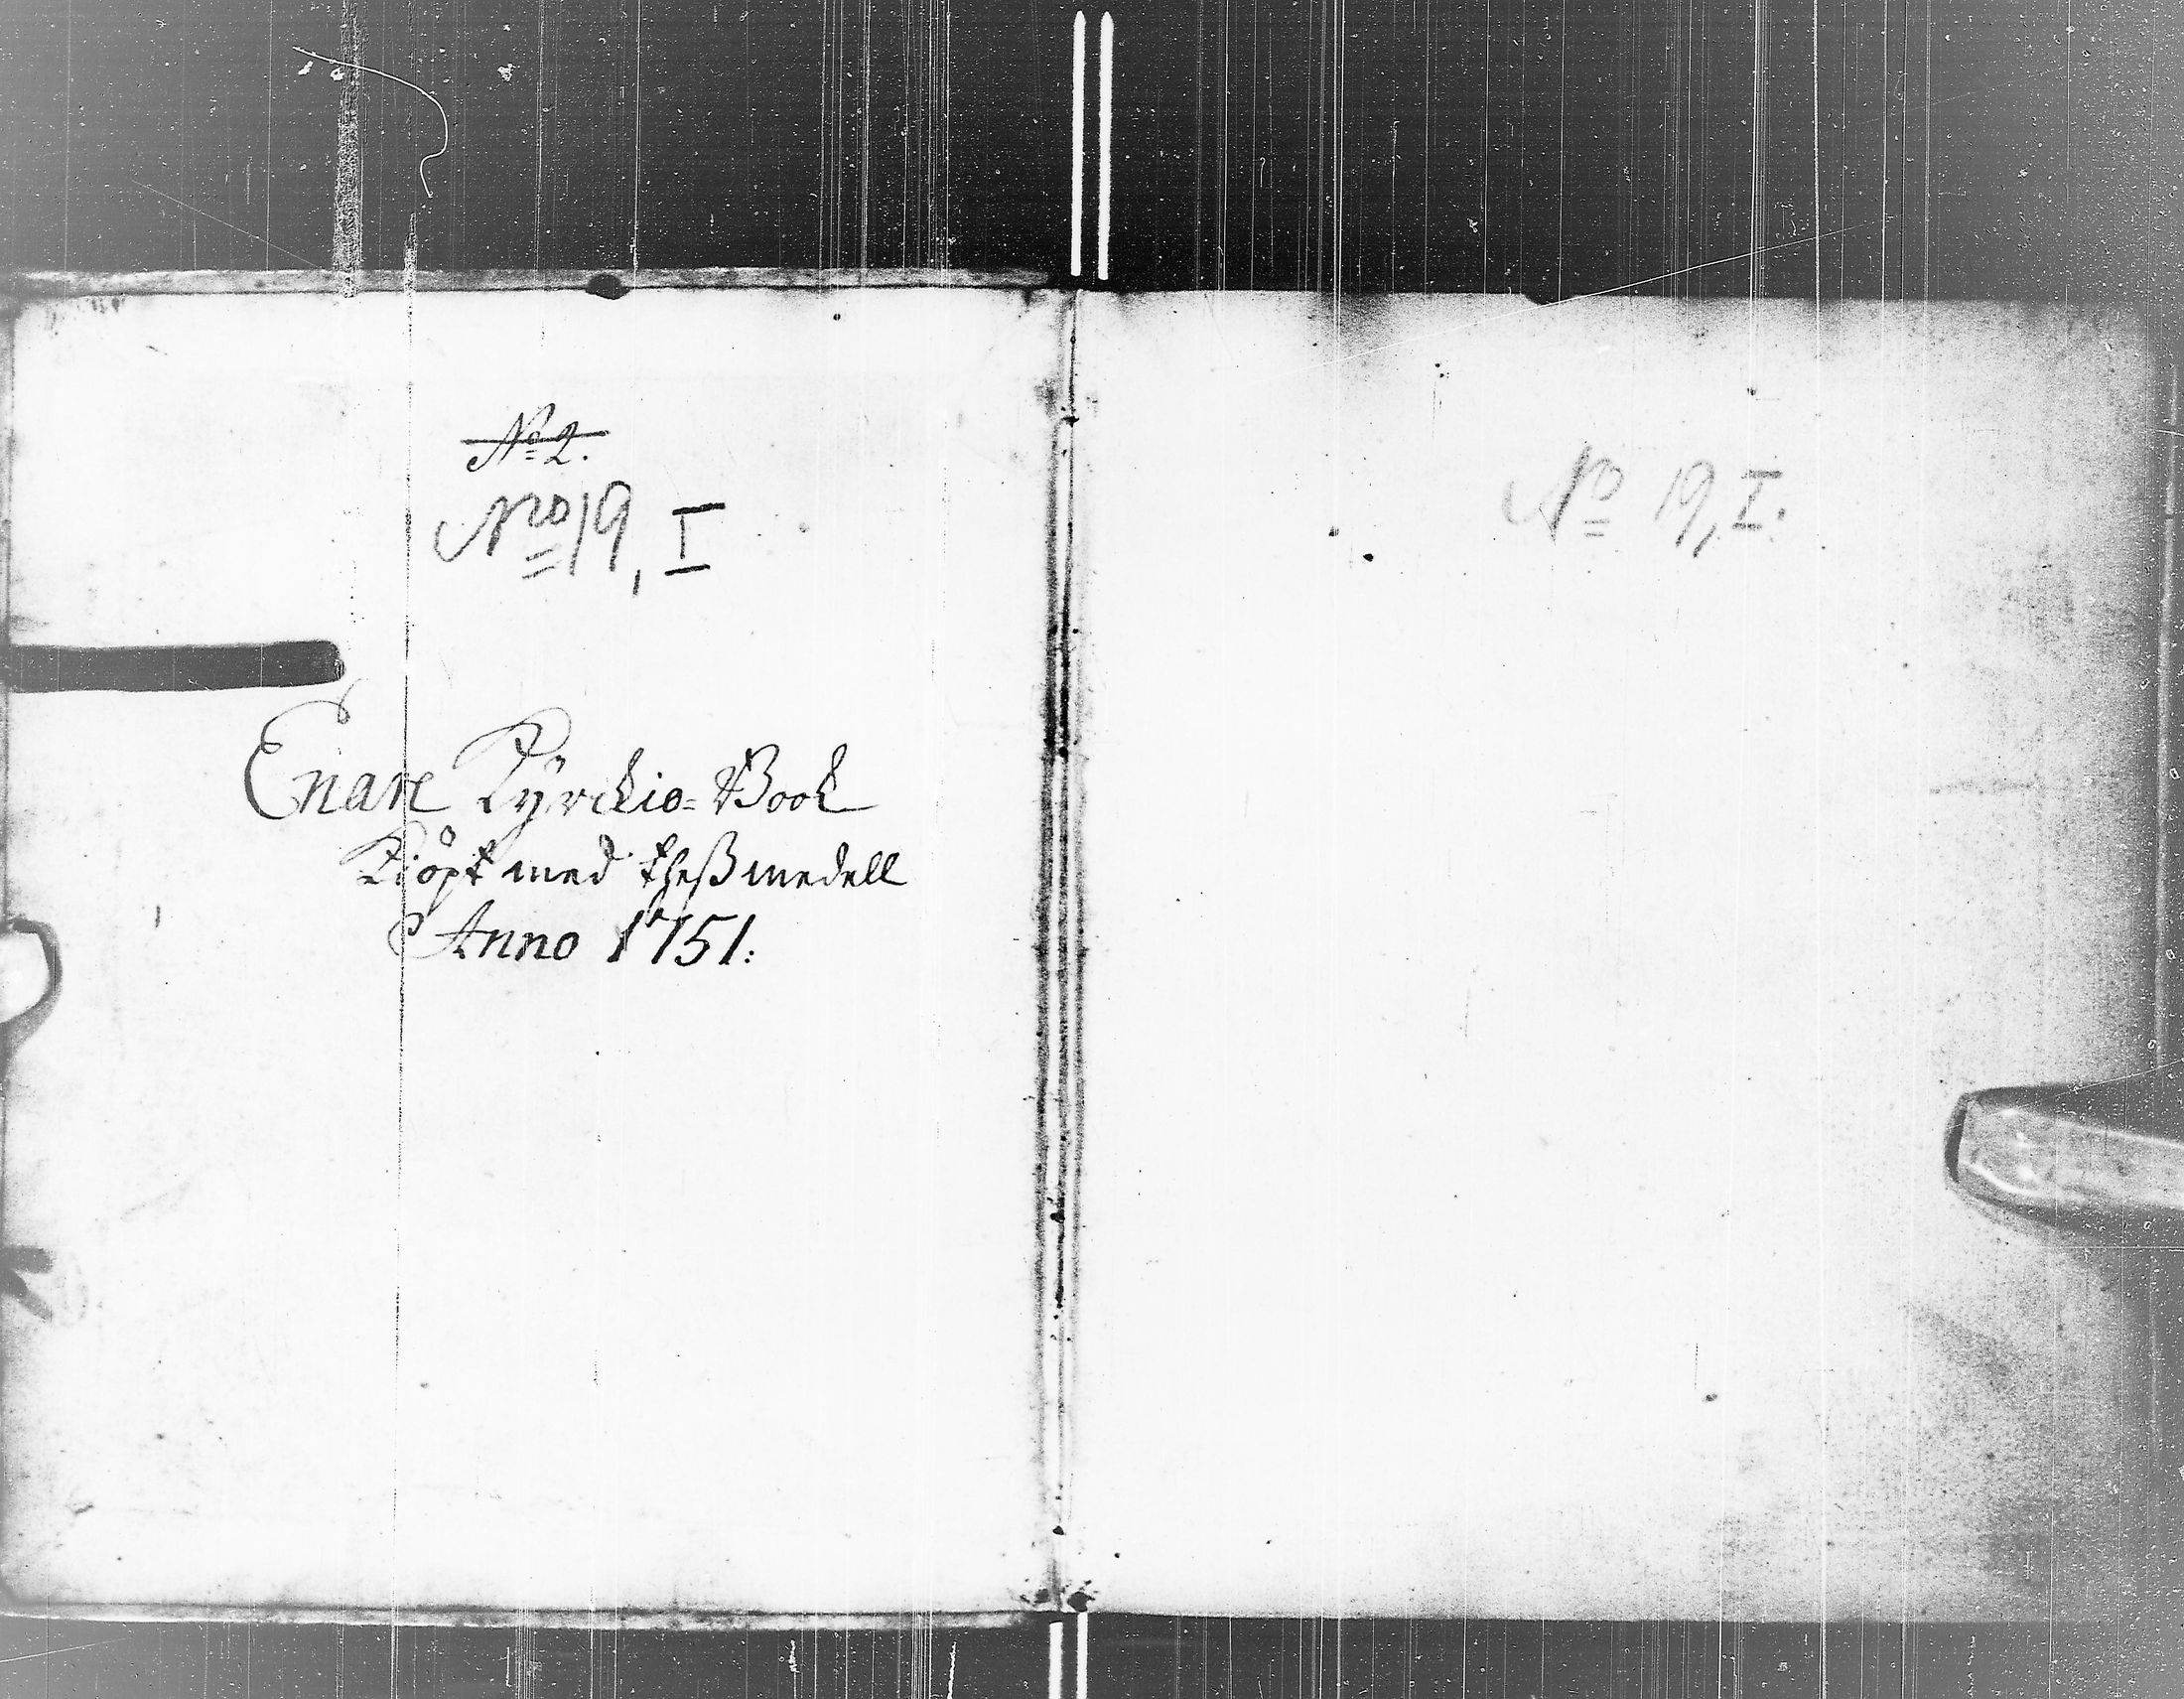 No 2.
Nro 19, I
Enare Kyrckio-Book
Kiöpt med theß medell
Anno 1751.
No 19, I.